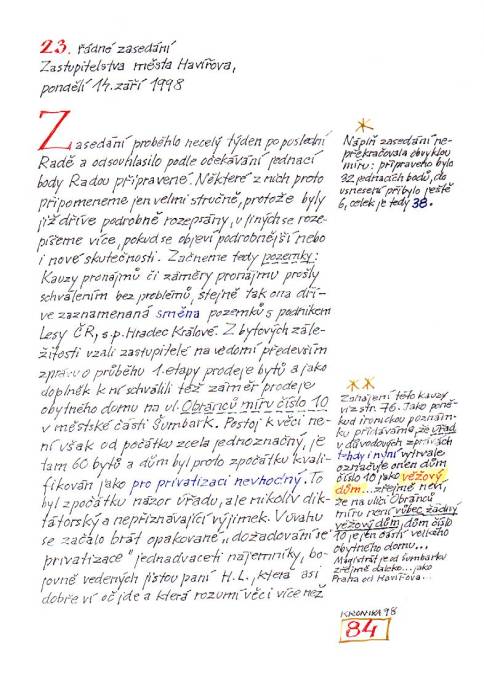 23. řádné zasedání
Zastupitelstva města Havířova,
pondělí 14. září 1998
Zasedání proběhlo necelý týden po poslední
Radě a odsouhlasilo podle očekávání jednací
body Radou připravené. Některé z nich proto
připomeneme jen velmi stručně, protože byly
již dříve podrobně rozepsány, u jiných se roze-
píšeme více, pokud se objeví podrobnější nebo
i nové skutečnosti. Začneme tedy pozemky:
Kauzy pronájmů či záměry pronájmu prošly
schválením bez problémů, stejně tak ona dří-
ve zaznamenaná směna pozemků s podnikem
Lesy ČR, s.p. Hradec Králové. Z bytových zále-
žitostí vzali zastupitelé na vědomí především
zprávu o průběhu 1. etapy prodeje bytů a jako
doplněk k ní schválili též záměr prodeje
obytného domu na ul. Obránců míru číslo 10
v městské části Šumbark. Postoj k věci ne-
ní však od počátku zcela jednoznačný, je
tam 60 bytů a dům byl proto zpočátku kvali-
fikován jako pro privatizaci nevhodný. To
byl zpočátku názor úřadu, ale nikoliv dik-
tátorský a nepřiznávající výjimek. V úvahu
se začalo brát opakované "dožadování se
privatizace" jednadvaceti nájemníky, bo-
jovně vedených jistou paní H.L., která asi
dobře ví oč jde a která rozumí věci více než
*
Náplň zasedání ne-
překračovala obvyklou
míru: připraveno bylo
32 jednacích bodů, do
usnesení přibylo ještě
6, celek je tedy 38.
**
Zahájení této kauzy
viz str. 76. Jako poně-
kud ironickou poznám-
ku přidáváme, že úřad
v důvodových zprávách
tehdy i nyní vytrvale
označuje onen dům
číslo 10 jako věžový
dům... zřejmě neví,
že na ulici Obránců
míru není vůbec žádný
věžový dům, dům číslo
10 je jen částí velkého
obytného domu...
Magistrát je od Šumbarku
zřejmě daleko... jako
Praha od Havířova...
KRONIKA 98
84